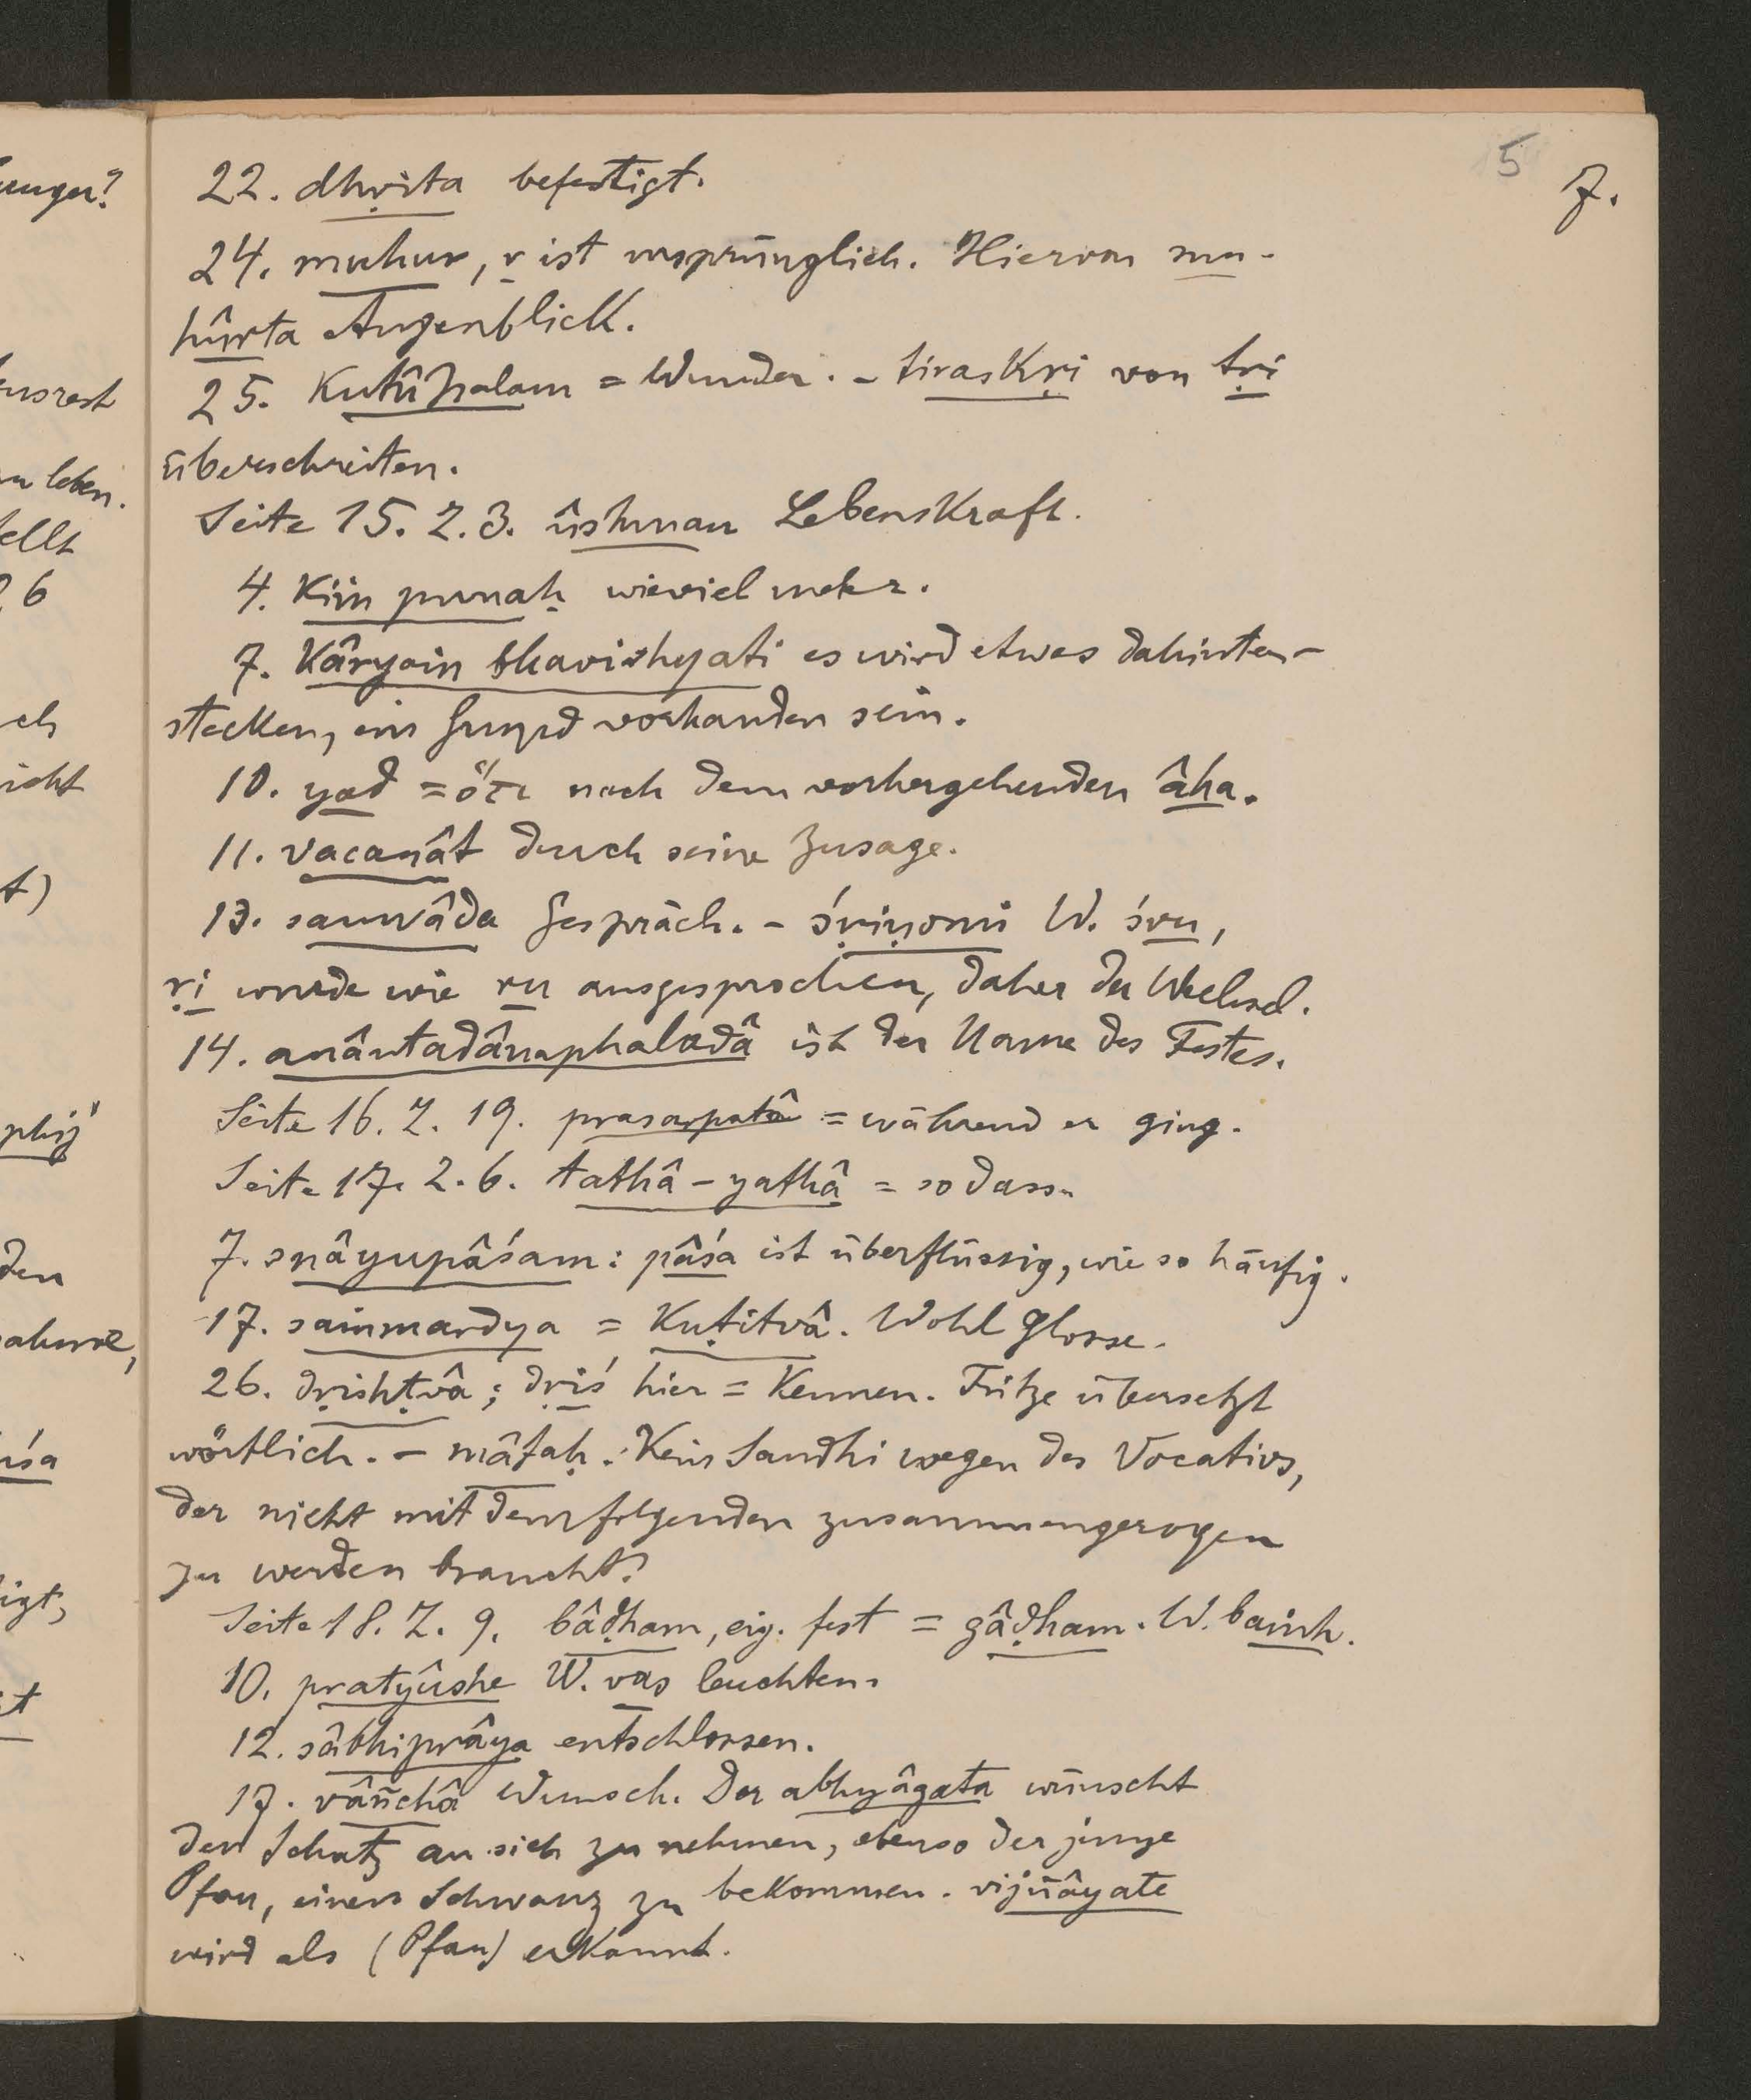 5
7.
22. dhṛita befestigt.
24. muhur, r ist ursprünglich. Hiervon mu-
hûrta Augenblick.
25. Kutûhalam = Wunder. - tiraskṛi von tṛi
überschreiten.
Seite 15. Z. 3. ûshman Lebenskraft.
4. Kiṁ punaḥ wieviel mehr.
7. Kâryaṁ bhavishyati es wird etwas dahinter-
stecken, ein Grund vorhanden sein.
10. yad = ὅτι nach dem vorhergehenden âha.
11. vacanât durch seine Zusage.
13. saṁvâda Gespräch. - śṛiṇomi W. śru,
ṛi wurde wie ru ausgesprochen, daher der Wechsel.
14. anântadânaphaladâ ist der Name des Festes.
Seite 16. Z. 19. prasarpatâ = während er ging.
Seite 17. Z. 6. tathâ - yathâ = so dass.
7. snâyupâśam: pâśa ist überflüssig, wie so häufig.
17. saṁmardya = Kuṭitvâ. Wohl Glosse.
26. dṛishṭvâ; dṛiś hier = Kennen. Fritze übersetzt
wörtlich. - mâtaḥ. Kein Sandhi wegen des Vocativs,
der nicht mit dem folgenden zusammengezogen
zu werden braucht?
Seite 18. Z. 9. bâḍham, eig. fest = gâḍham. W. baṁh.
10. pratyûshe W. vas leuchten.
12. sâbhiprâya entschlossen.
17. vâñchâ Wunsch. Der abhyâgata wünscht
den Schatz an sich zu nehmen, ebenso der junge
Pfau, einen Schwanz zu bekommen. vijñâyate
wird als (Pfau) erkannt.
unger?
usrest
leben.
ellt
6
ch
icht
t)
phij"
den
uśa
igt,